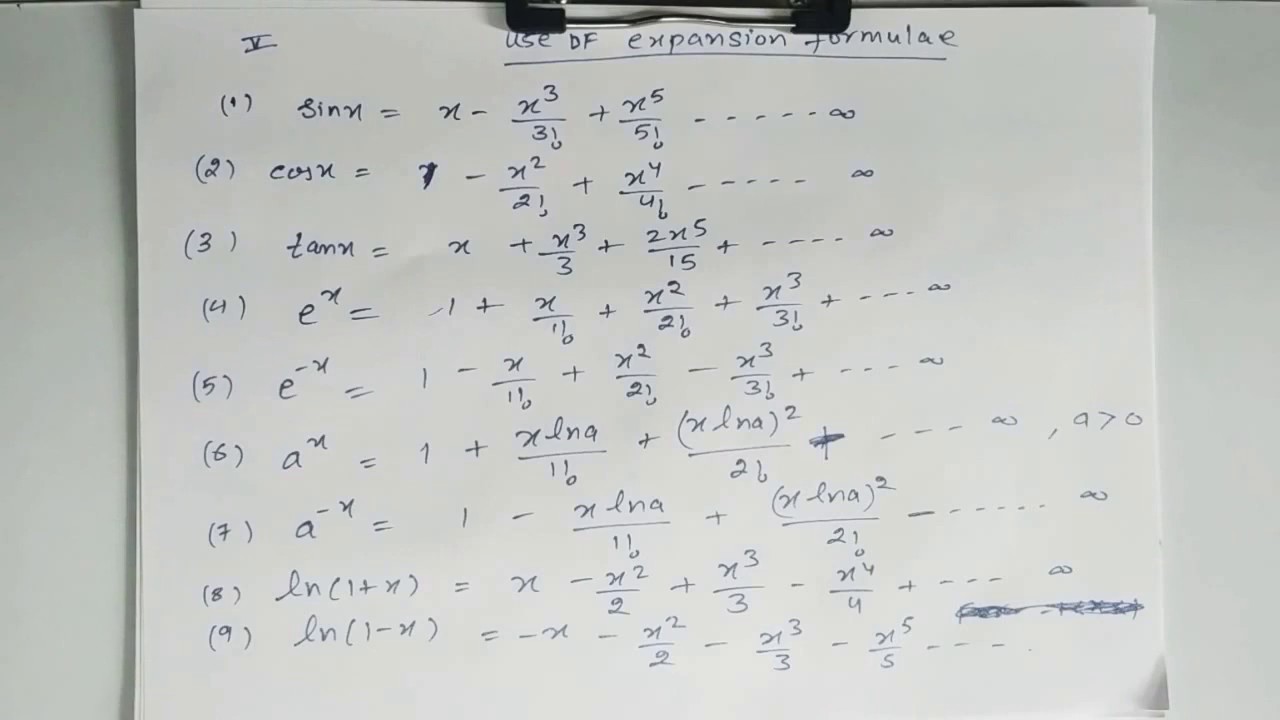 V use OF expansion formulae
(1) sinx = x - x³/3! + x⁵/5! - - - - - - ∞
(2) cosx = 1 - x²/2! + x⁴/4! - - - - - - ∞
(3) tanx = x + x³/3 + 2x⁵/15 + - - - - ∞
(4) eˣ = 1 + x/1! + x²/2! + x³/3! + - - - ∞
(5) e⁻ˣ = 1 - x/1! + x²/2! - x³/3! + - - - ∞
(6) aˣ = 1 + x lna/1! + (x lna)²/2! + - - - - ∞ , a > 0
(7) a⁻ˣ = 1 - x lna/1! + (x lna)²/2! - - - - - - ∞
(8) ln(1+x) = x - x²/2 + x³/3 - x⁴/4 + - - - ∞
(9) ln(1-x) = -x - x²/2 - x³/3 - x⁵/5 - - - - .